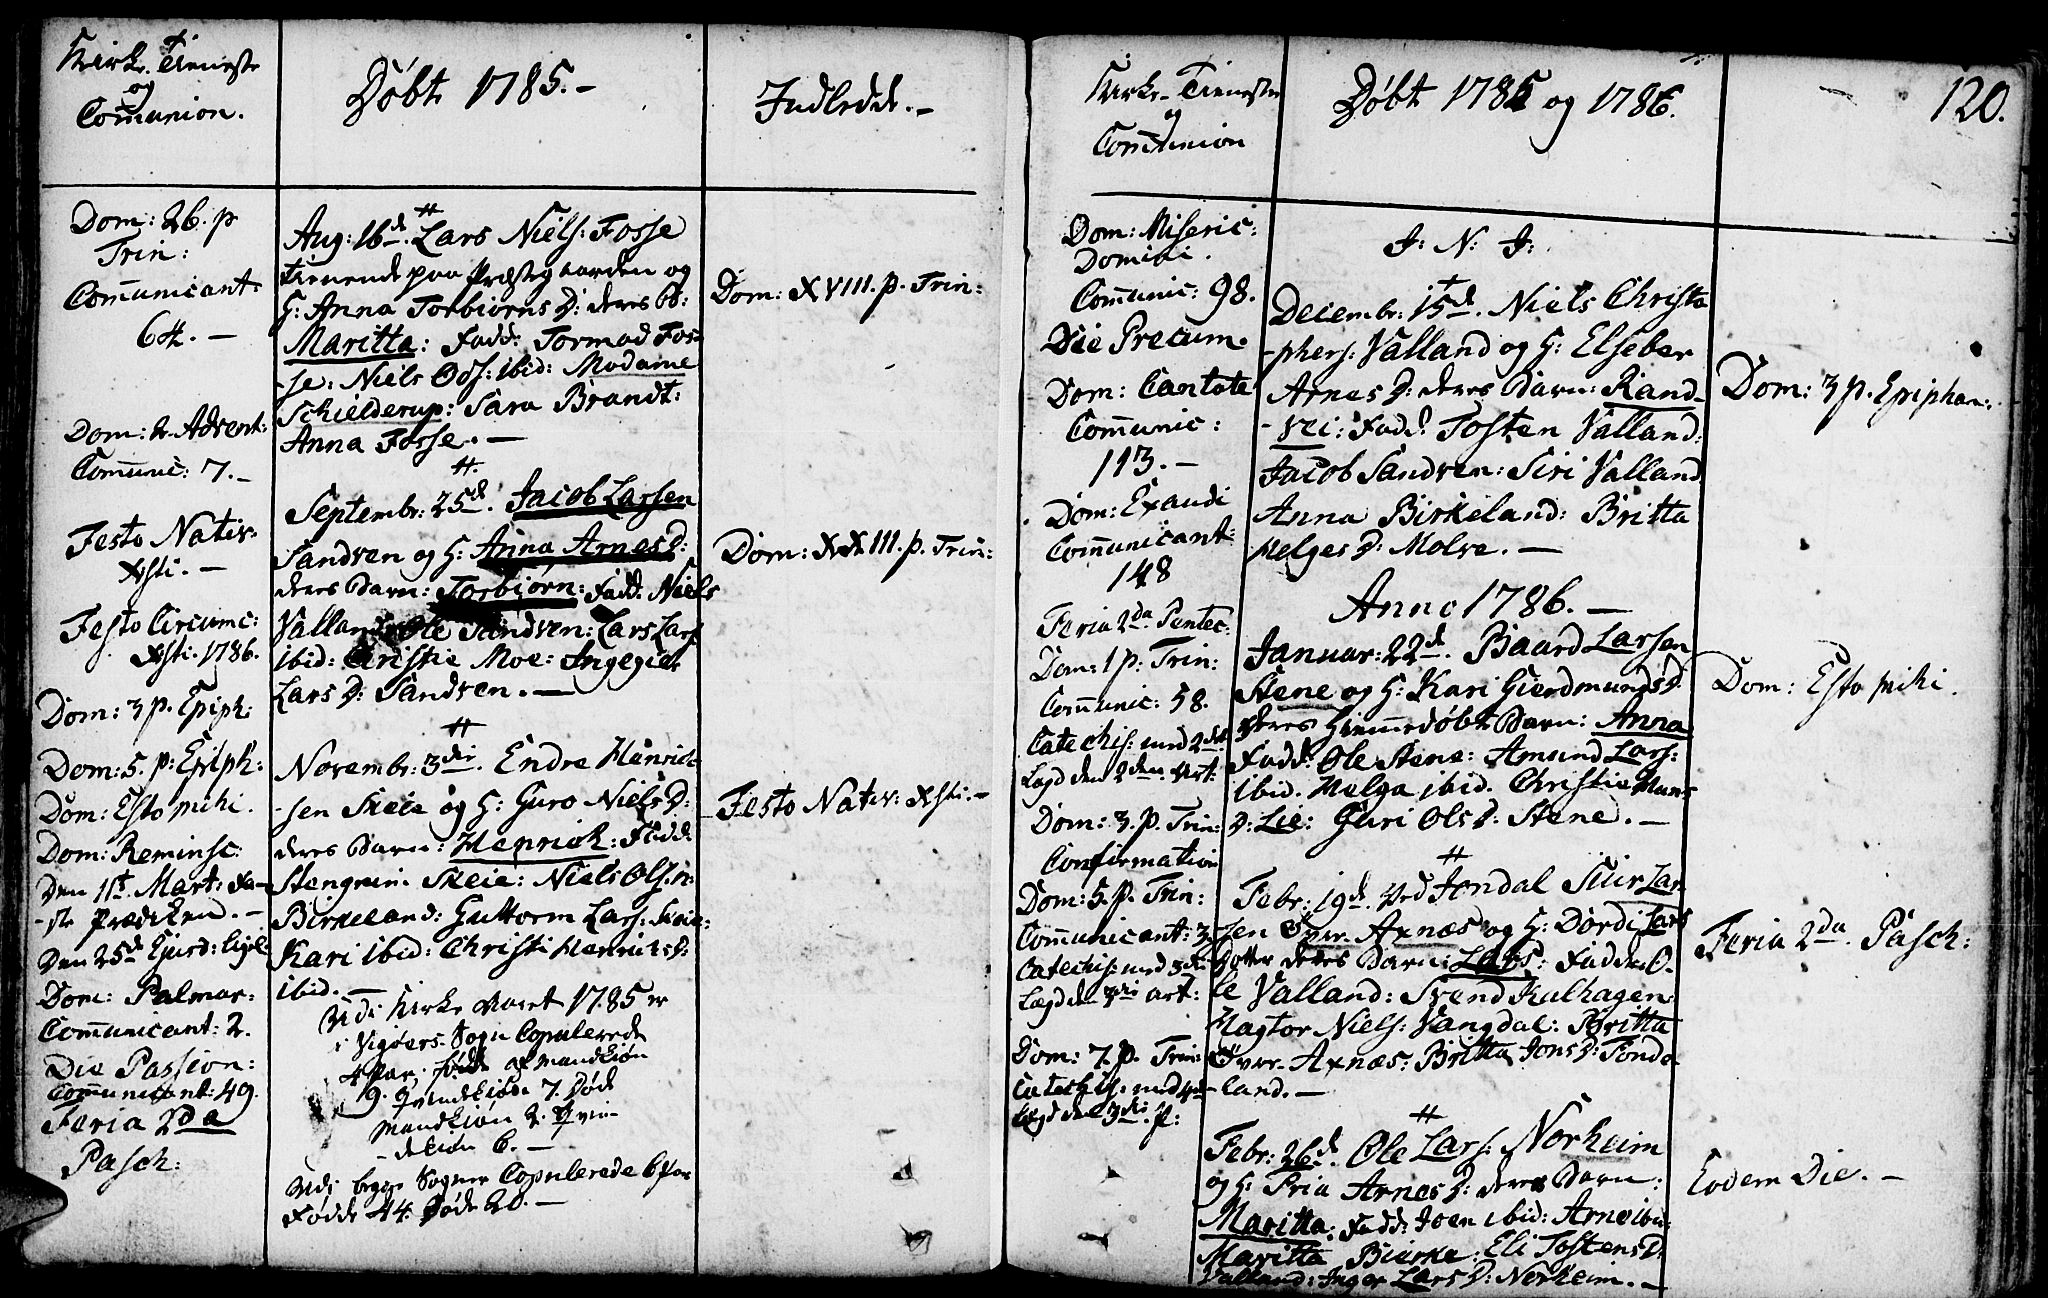 Kirke-Tieneste
og
Communion.
Dom: 26. p
Trin:
Communicant:
64. —
Dom: 2. Advent:
Communic: 7. —
Festo Nativ.
Xsti. —
Festo Circumc:
Xsti. 1786.
Dom: 3 p. Epiph:
Dom: 5. p: Epiph:
Dom: Esto mihi.
Dom: Reminsc:
Den 1st. Mart: Fa-
-ste Prædiken. —
Den 25d
Dom: Palmar:
Communicant: 2.
Die Passion:
Communicant: 49.
Feria 2da
Pasch:
Döbt 1785. —
Aug: 16d. Lars Niels: Fosse
tienende paa Præstegaarden og
H: Anna Torbiørns D: deres B:
Maritta: Fadd: Tormod Fos-
-se: Niels Ols: ibid: Madame
Schielderup: Sara Brandt:
Anna Fosse. —
Septembr: 25d. Jacob Larsen
Sandven og H: Anna Arnes D:
deres Barn: Torbiørn: Fadd: Niels
Valland: Ole Sandven: Lars Lars:
ibid: Christie Moe: Ingegier
Lars D: Sandven. —
Novembr: 3di. Endre Henrich-
-sen Skeie og H: Guro Niels D:
deres Barn: Henrich: Fadd:
Stengrim Skeie: Niels Olsen:
Birkeland: Guttorm Lars: Skeie:
Kari ibid: Christi Henrichs D:
ibid. —
Udi Kirke Aaret 1785 er
i Vigøers Sogn Copulerede
4 Par. fødde af Mandkiøn
9. Qvindekiøn 7. Døde
Mandkiøn 2. Qvin-
-dekiøn 6. —
Udi begge Sogner Copulerede 6 Par
Fødde 44. Døde 20. —
Indledde. —
Dom: XVIII. p. Trin:
Dom: XXIII. p. Trin:
Festo Nativ: Xsti. —
Kirke-Tieneste
og
Communion
Dom: Miseric:
Domini.
Communic: 98.
Die Precum.
Dom: Cantate
Communic:
113. —
Dom: Exaudi
Communicant:
148
Feria 2da Pentec:
Dom: 1 p: Trin:
Communic: 58.
Catechis: med 2det
Lægd den 2den Art:
Dom: 3. p. Trin:
Confirmation
Dom: 5. p. Trin:
Communicant: 3
Catechis: med 3di
Lægd den 3di Art:
Dom: 7. p. Trin:
Catechis: med 4de
Lægd den 3di p:
Döbt 1785 og 1786.
J: N: J:
Decembr: 15d. Niels Christo
-phers: Valland og H: Elseber
Arnes D: deres Barn: Rand-
-vei: Fadd: Tosten Valland:
Jacob Sandven: Siri Valland
Anna Birkeland: Britta
Helges D: Molve. —
Anno 1786. —
Januar: 22d. Baard Larsen
Stene og H: Kari Gierdmunds D:
deres Hiemmedøbte Barn: Anna
Fadd: Ole Stene: Amund Lars:
ibid. Helga ibid. Christie Hans
D: Lie: Guri Ols D: Stene. —
Febr: 19d. ved Jondal Siur Lar-
sen Axnæs og H: Dordi Lars
Dotter deres Barn: Lars: Fadd: O-
le Valland: Svend Kulhagen
Hagtor Niels: Vangdal: Britta
Axnæs: Britta Jons D: Tonde
-land. —
Febr: 26d. Ole Lars: Norheim
og H: Pria Arnes D: deres Barn:
Maritta: Fadd: Joen ibid: Arne ibid:
Maritta Bierke: Eli Tostens D:
Valland: Inger Lars D: Norheim. —
120.
Dom: 3 p. Epiphan:
Dom: Esto mihi.
Feria 2da. Pasch:
Eodem Die. —